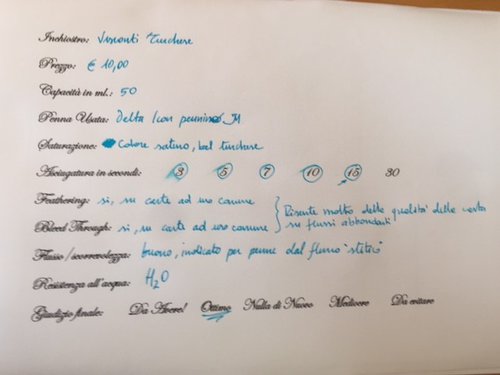 Inchiostro: Visconti Turchese
Prezzo: € 10,00
Capacità in ml.: 50
Penna Usata: Delta Icon pennino M
Saturazione: Colore saturo, bel turchese
Asciugatura in secondi: 3 5 7 10 15 30
Feathering: si, su carte ad uso comune
Bleed Through: si, su carte ad uso comune
Risente molto della qualità della carta
su flussi abbondanti
Flusso/scorrevolezza: buono, indicato per penne dal flusso "stitico"
Resistenza all'acqua: H2O
Giudizio finale: Da Avere! Ottimo Nulla di Nuovo Mediocre Da evitare